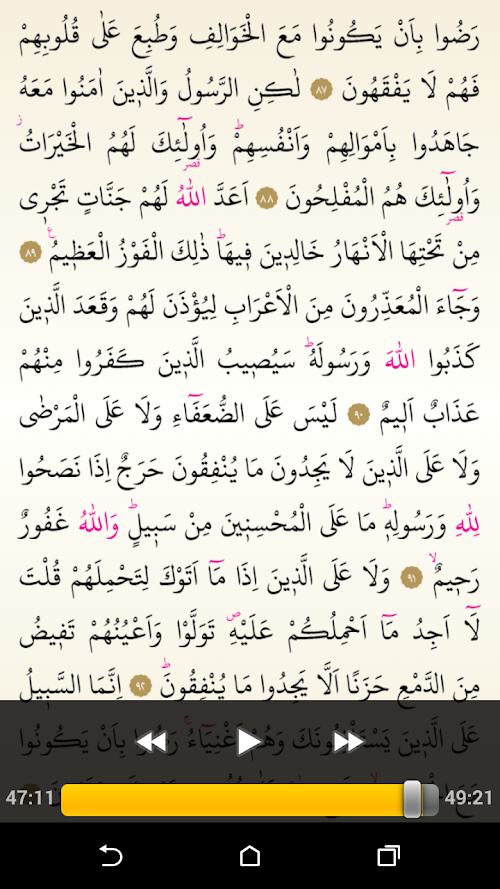 رَضُوا بِاَنْ يَكُونُوا مَعَ الْخَوَالِفِ وَطُبِعَ عَلٰى قُلُوبِهِمْ
فَهُمْ لَا يَفْقَهُونَ ٨٧ لٰكِنِ الرَّسُولُ وَالَّذ۪ينَ اٰمَنُوا مَعَهُ
جَاهَدُوا بِاَمْوَالِهِمْ وَاَنْفُسِهِمْۜ وَاُو۬لٰٓئِكَ لَهُمُ الْخَيْرَاتُۘ
وَاُو۬لٰٓئِكَ هُمُ الْمُفْلِحُونَ ٨٨ اَعَدَّ اللّٰهُ لَهُمْ جَنَّاتٍ تَجْر۪ي
مِنْ تَحْتِهَا الْاَنْهَارُ خَالِد۪ينَ ف۪يهَاۜ ذٰلِكَ الْفَوْزُ الْعَظ۪يمُ۟ ٨٩
وَجَٓاءَ الْمُعَذِّرُونَ مِنَ الْاَعْرَابِ لِيُؤْذَنَ لَهُمْ وَقَعَدَ الَّذ۪ينَ
كَذَبُوا اللّٰهَ وَرَسُولَهُۜ سَيُص۪يبُ الَّذ۪ينَ كَفَرُوا مِنْهُمْ
عَذَابٌ اَل۪يمٌ ٩٠ لَيْسَ عَلَى الضُّعَفَٓاءِ وَلَا عَلَى الْمَرْضٰى
وَلَا عَلَى الَّذ۪ينَ لَا يَجِدُونَ مَا يُنْفِقُونَ حَرَجٌ اِذَا نَصَحُوا
لِلّٰهِ وَرَسُولِه۪ۜ مَا عَلَى الْمُحْسِن۪ينَ مِنْ سَب۪يلٍۜ وَاللّٰهُ غَفُورٌ
رَح۪يمٌۙ ٩١ وَلَا عَلَى الَّذ۪ينَ اِذَا مَٓا اَتَوْكَ لِتَحْمِلَهُمْ قُلْتَ
لَٓا اَجِدُ مَٓا اَحْمِلُكُمْ عَلَيْهِۖ تَوَلَّوْا وَاَعْيُنُهُمْ تَف۪يضُ
مِنَ الدَّمْعِ حَزَنًا اَلَّا يَجِدُوا مَا يُنْفِقُونَۜ ٩٢ اِنَّمَا السَّب۪يلُ
عَلَى الَّذ۪ينَ يَسْتَأْذِنُونَكَ وَهُمْ اَغْنِيَٓاءُۚ رَضُوا بِاَنْ يَكُونُوا
47:11
49:21